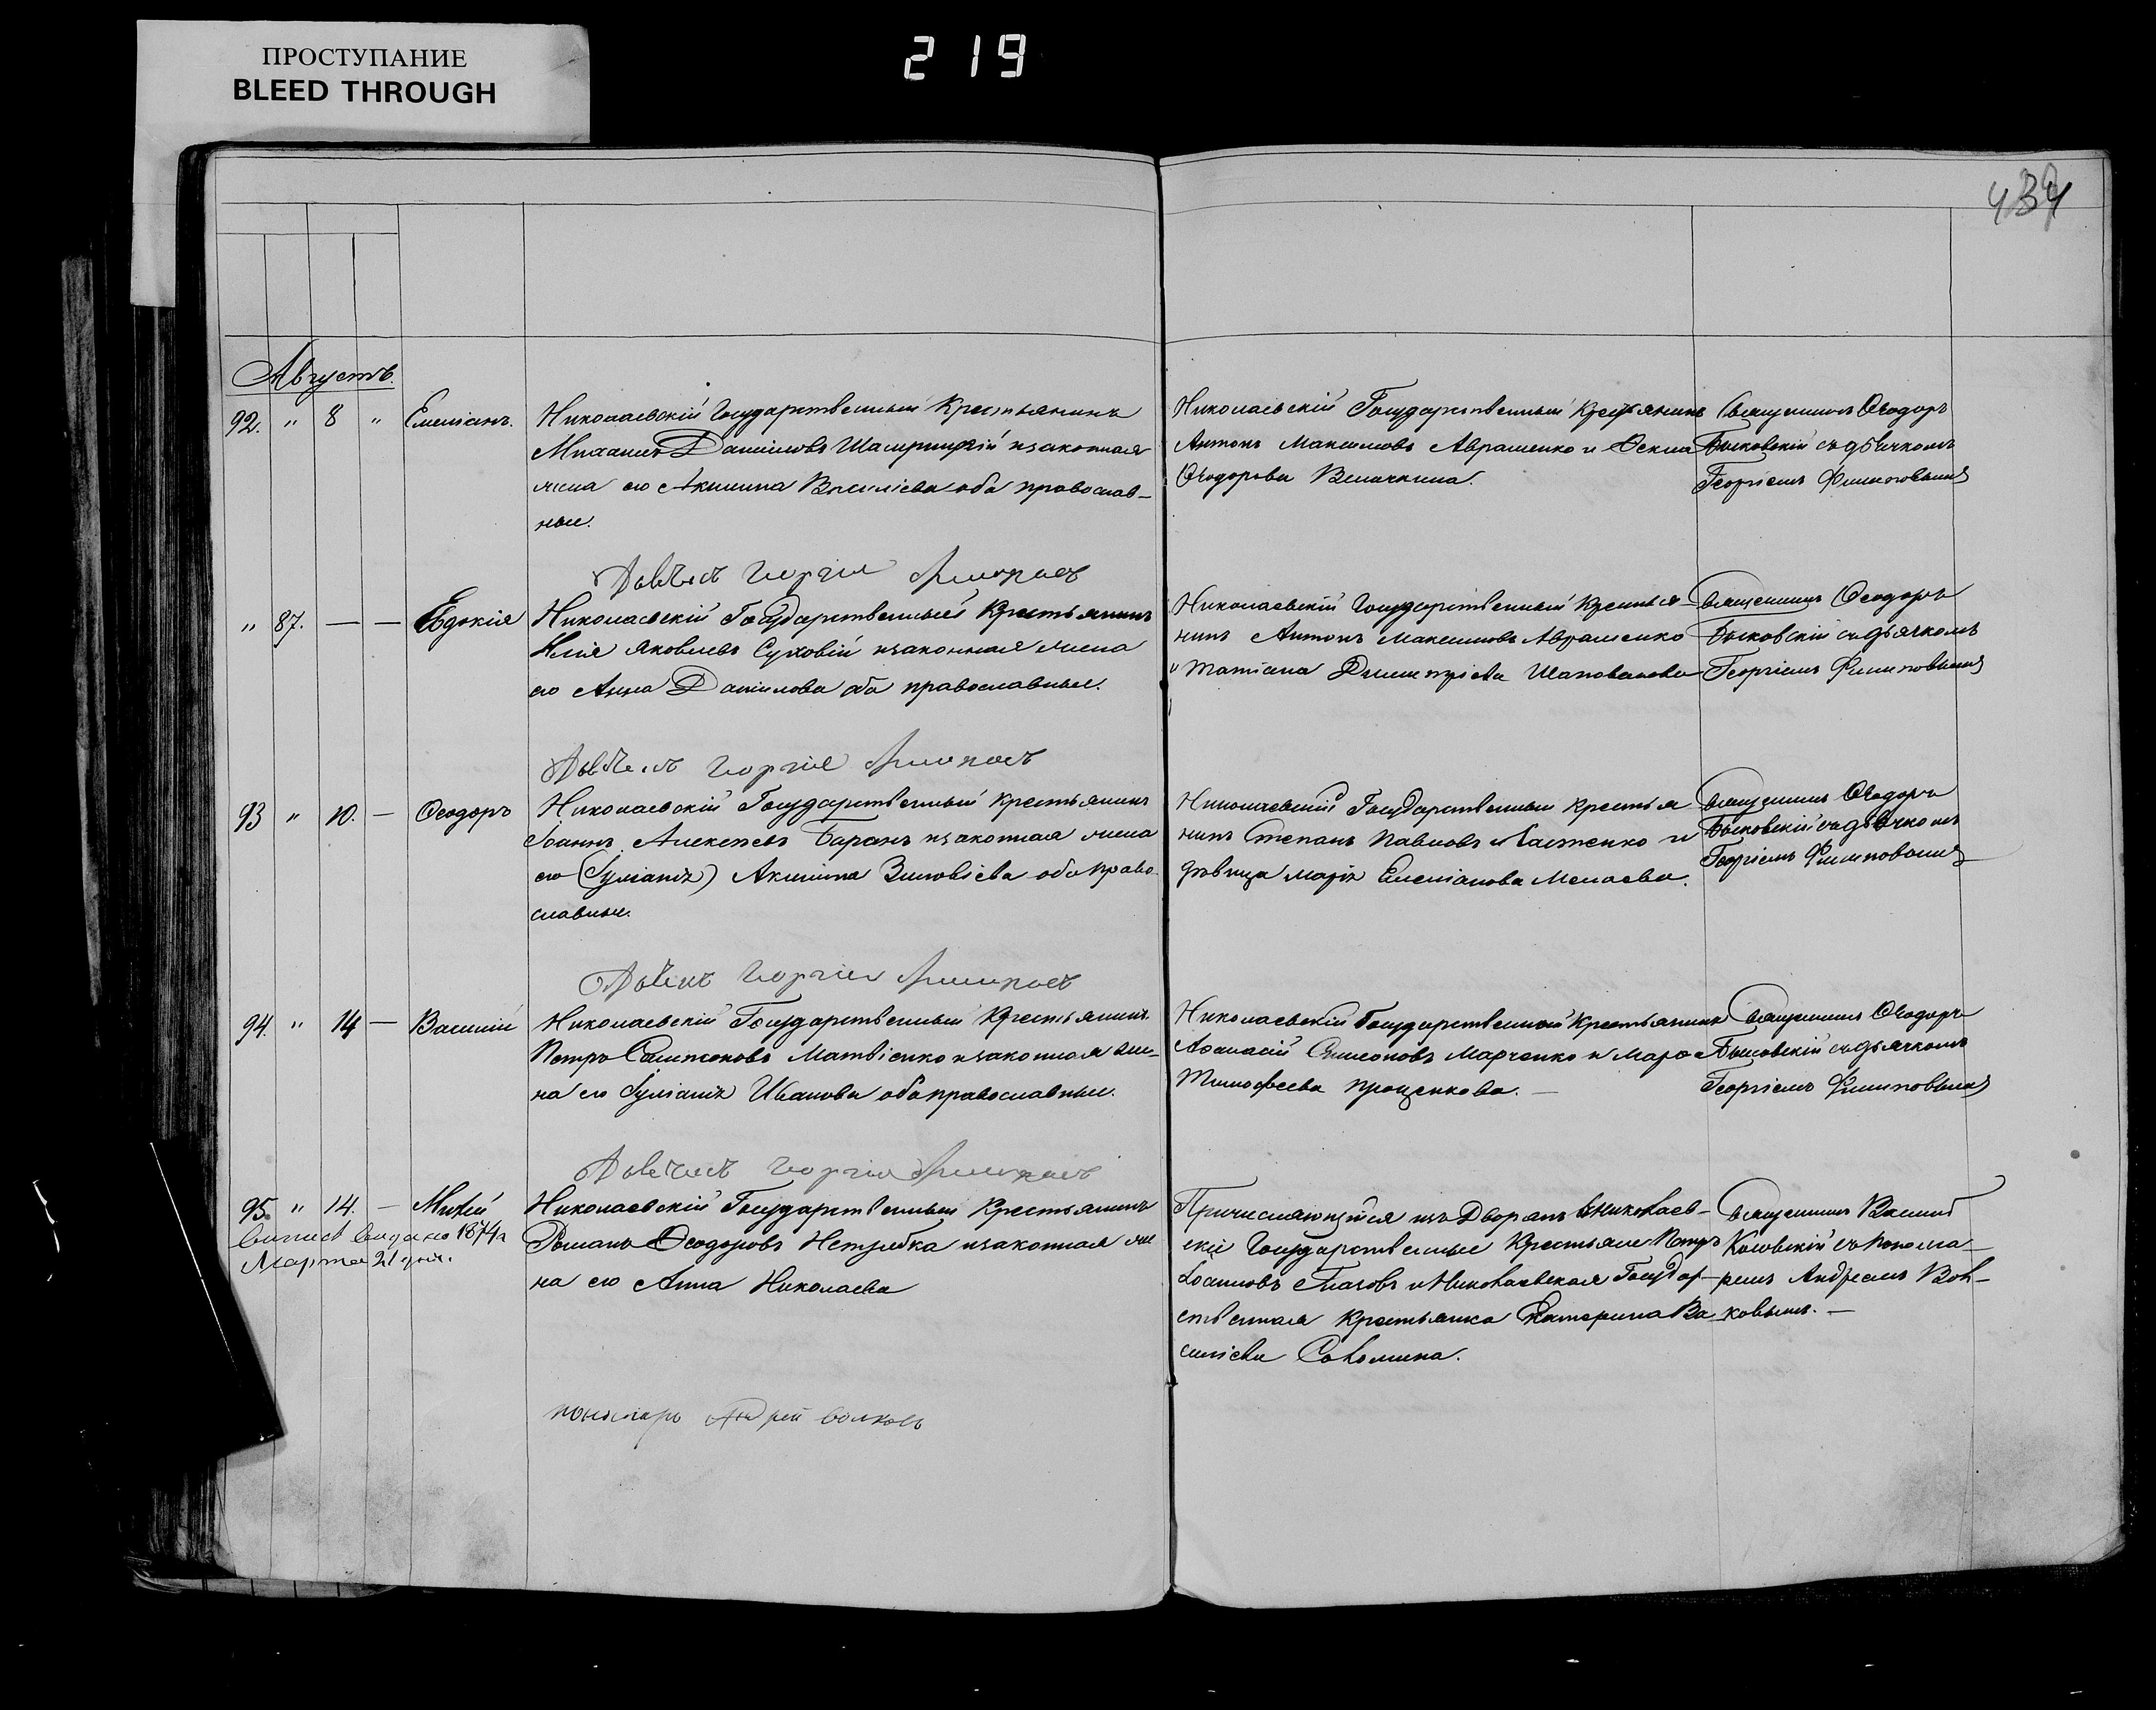 ПРОСТУПАНИЕ
BLEED THROUGH
219
Августъ.
92. " 8 " Емеліанъ.
Николаевскій Государственный Крестьянинъ
Михаилъ Даніиловъ изаконная
жена его Акилина Василіева оба православ-
ные.
Николаевскій Государственный Крестьянинъ
Антонъ Максимовъ Авраменко и Оекла
Ѳеодорова Величкина.
Священникъ Ѳеодоръ
Быковскій съ дьячкомъ
Георгіемъ Филиповымъ
Дьячекъ Георгій Филиповъ
" 87. — — Евдокія
Николаевскій Государственный Крестьянинъ
Илія Яковлевъ Суховій изаконная жена
его Анна Даніилова оба православные.
Николаевскій Государственный Крестья-
нинъ Антонъ Максимовъ Авраменко
и Татіана Димитріева Шаповалова
Священникъ Ѳеодоръ
Быковскій съ дьячкомъ
Георгіемъ Филиповымъ
Дьячекъ Георгій Филиповъ
93 " 10. — Ѳеодоръ
Николаевскій Государственный Крестьянинъ
Іоаннъ Алексіевъ Баранъ изаконная жена
его (Іуліанія) Акилина Зиновіева оба право-
славные.
Николаевскій Государственный Крестья
нинъ Степанъ Павловъ Ластенко и
дѣвица Марія Емеліанова
Священникъ Ѳеодоръ
Быковскій съ дьячкомъ
Георгіемъ Филиповымъ
Дьячекъ Георгій Филиповъ
94. " 14 — Василій
Николаевскій Государственный Крестьянинъ
Петръ Матвіенко изаконная же-
на его Іуліанія Иванова оба православные.
Николаевскій Государственный Крестьянинъ
Аѳанасій Симеоновъ Марченко и
Тимоѳеева Проценкова. —
Священникъ Ѳеодоръ
Быковскій съ дьячкомъ
Георгіемъ Филиповымъ
Дьячекъ Георгій Филиповъ
95. " 14. — Михей
выдано 1874 г
Марта 21 дня.
Николаевскій Государственный Крестьянинъ
Романъ Ѳеодоровъ Нетребка изаконная же
на его Анна Николаева
Причисляющійся изъ Дворянъ в Николаев-
скіе Государственные Крестьяне Петръ
Іоанновъ и Николаевская Государ-
ственная Крестьянка Екатерина Ва
силіева Соломина.
Священникъ Василій
съ Понома-
ремъ Андреемъ Вол-
ковымъ. —
пономарь Андрей Волковъ